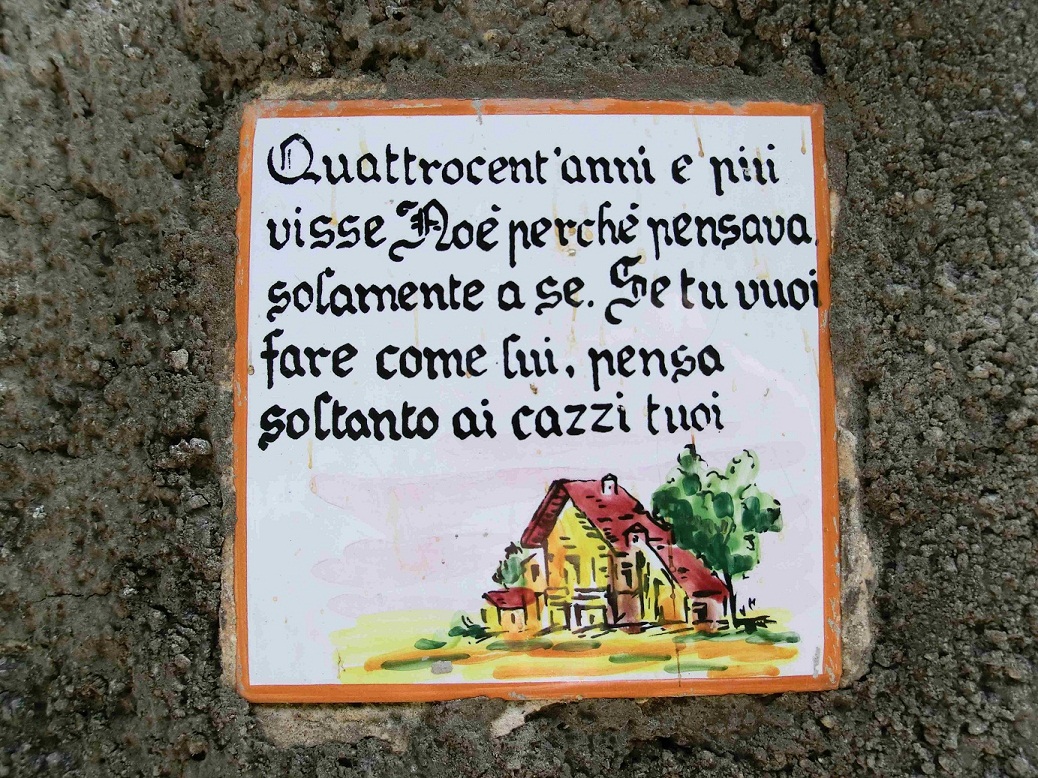 Quattrocent'anni e più
visse Noè perchè pensava
solamente a se. Se tu vuoi
fare come lui, pensa
soltanto ai cazzi tuoi